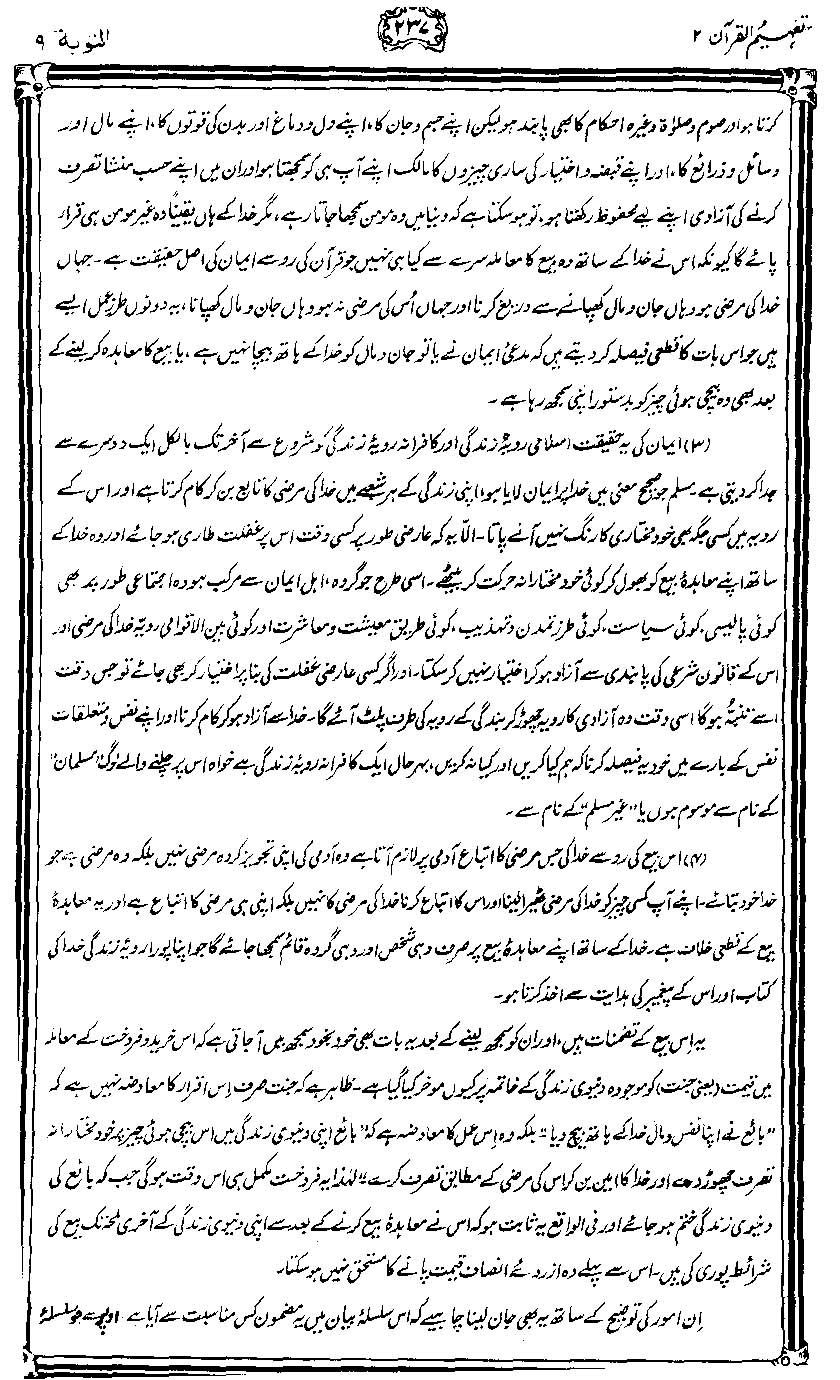 تفہیم القرآن ۲
۲۳۷
التوبۃ ۹
کرتا ہو اور صوم و صلوٰۃ وغیرہ احکام کا بھی پابند ہو لیکن اپنے جسم و جان کا، اپنے دل و دماغ اور بدن کی قوتوں کا، اپنے مال اور
وسائل و ذرائع کا، اور اپنے قبضہ و اختیار کی ساری چیزوں کا مالک اپنے آپ ہی کو سمجھتا ہو اور ان میں اپنے حسب منشا تصرف
کرنے کی آزادی اپنے لیے محفوظ رکھتا ہو، تو ہو سکتا ہے کہ دنیا میں وہ مومن سمجھا جاتا رہے، مگر خدا کے ہاں یقیناً وہ غیر مومن ہی قرار
پائے گا کیونکہ اس نے خدا کے ساتھ وہ بیع کا معاملہ سرے سے کیا ہی نہیں جو قرآن کی رو سے ایمان کی اصل حقیقت ہے۔ جہاں
خدا کی مرضی ہو وہاں جان و مال کھپانے سے دریغ کرنا اور جہاں اُس کی مرضی نہ ہو وہاں جان و مال کھپانا، یہ دونوں طرز عمل ایسے
ہیں جو اس بات کا قطعی فیصلہ کر دیتے ہیں کہ مدعیٔ ایمان نے یا تو جان و مال کو خدا کے ہاتھ بیچا نہیں ہے، یا بیع کا معاہدہ کر لینے کے
بعد بھی وہ بیچی ہوئی چیز کو بدستور اپنی سمجھ رہا ہے۔
(۳) ایمان کی یہ حقیقت اسلامی رویۂ زندگی اور کافرانہ رویۂ زندگی کو شروع سے آخر تک بالکل ایک دوسرے سے
جدا کر دیتی ہے۔ مسلم جو صحیح معنی میں خدا پر ایمان لایا ہو، اپنی زندگی کے ہر شعبے میں خدا کی مرضی کا تابع بن کر کام کرتا ہے اور اس کے
رویہ میں کسی جگہ بھی خود مختاری کا رنگ نہیں آنے پاتا۔ الّا یہ کہ عارضی طور پر کسی وقت اس پر غفلت طاری ہو جائے اور وہ خدا کے
ساتھ اپنے معاہدۂ بیع کو بھول کر کوئی خود مختارانہ حرکت کر بیٹھے۔ اسی طرح جو گروہ، اہل ایمان سے مرکب ہو وہ اجتماعی طور پر بھی
کوئی پالیسی، کوئی سیاست، کوئی طرز تمدن و تہذیب، کوئی طریق معیشت و معاشرت اور کوئی بین الاقوامی رویہ خدا کی مرضی اور
اس کے قانون شرعی کی پابندی سے آزاد ہو کر اختیار نہیں کر سکتا۔ اور اگر کسی عارضی غفلت کی بنا پر اختیار کر بھی جائے تو جس وقت
اسے تنبُّہ ہو گا اسی وقت وہ آزادی کا رویہ چھوڑ کر بندگی کے رویہ کی طرف پلٹ آئے گا۔ خدا سے آزاد ہو کر کام کرنا اور اپنے نفس و متعلقات
نفس کے بارے میں خود یہ فیصلہ کرنا کہ ہم کیا کریں اور کیا نہ کریں، بہر حال ایک کافرانہ رویۂ زندگی ہے خواہ اس پر چلنے والے لوگ "مسلمان"
کے نام سے موسوم ہوں یا "غیر مسلم" کے نام سے۔
(۴) اس بیع کی رو سے خدا کی جس مرضی کا اتباع آدمی پر لازم آتا ہے وہ آدمی کی اپنی تجویز کردہ مرضی نہیں بلکہ وہ مرضی ہے جو
خدا خود بتائے۔ اپنے آپ کسی چیز کو خدا کی مرضی ٹھیرا لینا اور اس کا اتباع کرنا خدا کی مرضی کا نہیں بلکہ اپنی ہی مرضی کا اتباع ہے اور یہ معاہدۂ
بیع کے قطعی خلاف ہے۔ خدا کے ساتھ اپنے معاہدۂ بیع پر صرف وہی شخص اور وہی گروہ قائم سمجھا جائے گا جو اپنا پورا رویۂ زندگی خدا کی
کتاب اور اس کے پیغمبر کی ہدایت سے اخذ کرتا ہو۔
یہ اِس بیع کے تضمنات ہیں، اور ان کو سمجھ لینے کے بعد یہ بات بھی خود بخود سمجھ میں آجاتی ہے کہ اس خرید و فروخت کے معاملہ
میں قیمت (یعنی جنت) کو موجودہ دنیوی زندگی کے خاتمہ پر کیوں موخر کیا گیا ہے۔ ظاہر ہے کہ جنت صرف اِس اقرار کا معاوضہ نہیں ہے کہ
"بائع نے اپنا نفس و مال خدا کے ہاتھ بیچ دیا" بلکہ وہ اِس عمل کا معاوضہ ہے کہ "بائع اپنی دنیوی زندگی میں اس بیچی ہوئی چیز پر خود مختارانہ
تصرف چھوڑ دے اور خدا کا امین بن کر اس کی مرضی کے مطابق تصرف کرے"۔ لہٰذا یہ فروخت مکمل ہی اس وقت ہوگی جب کہ بائع کی
دنیوی زندگی ختم ہو جائے اور فی الواقع یہ ثابت ہو کہ اس نے معاہدۂ بیع کرنے کے بعد سے اپنی دنیوی زندگی کے آخری لمحہ تک بیع کی
شرائط پوری کی ہیں۔ اس سے پہلے وہ از روئے انصاف قیمت پانے کا مستحق نہیں ہو سکتا۔
اِن امور کی توضیح کے ساتھ یہ بھی جان لینا چاہیے کہ اس سلسلۂ بیان میں یہ مضمون کس مناسبت سے آیا ہے۔ اوپر سے جو سلسلۂ